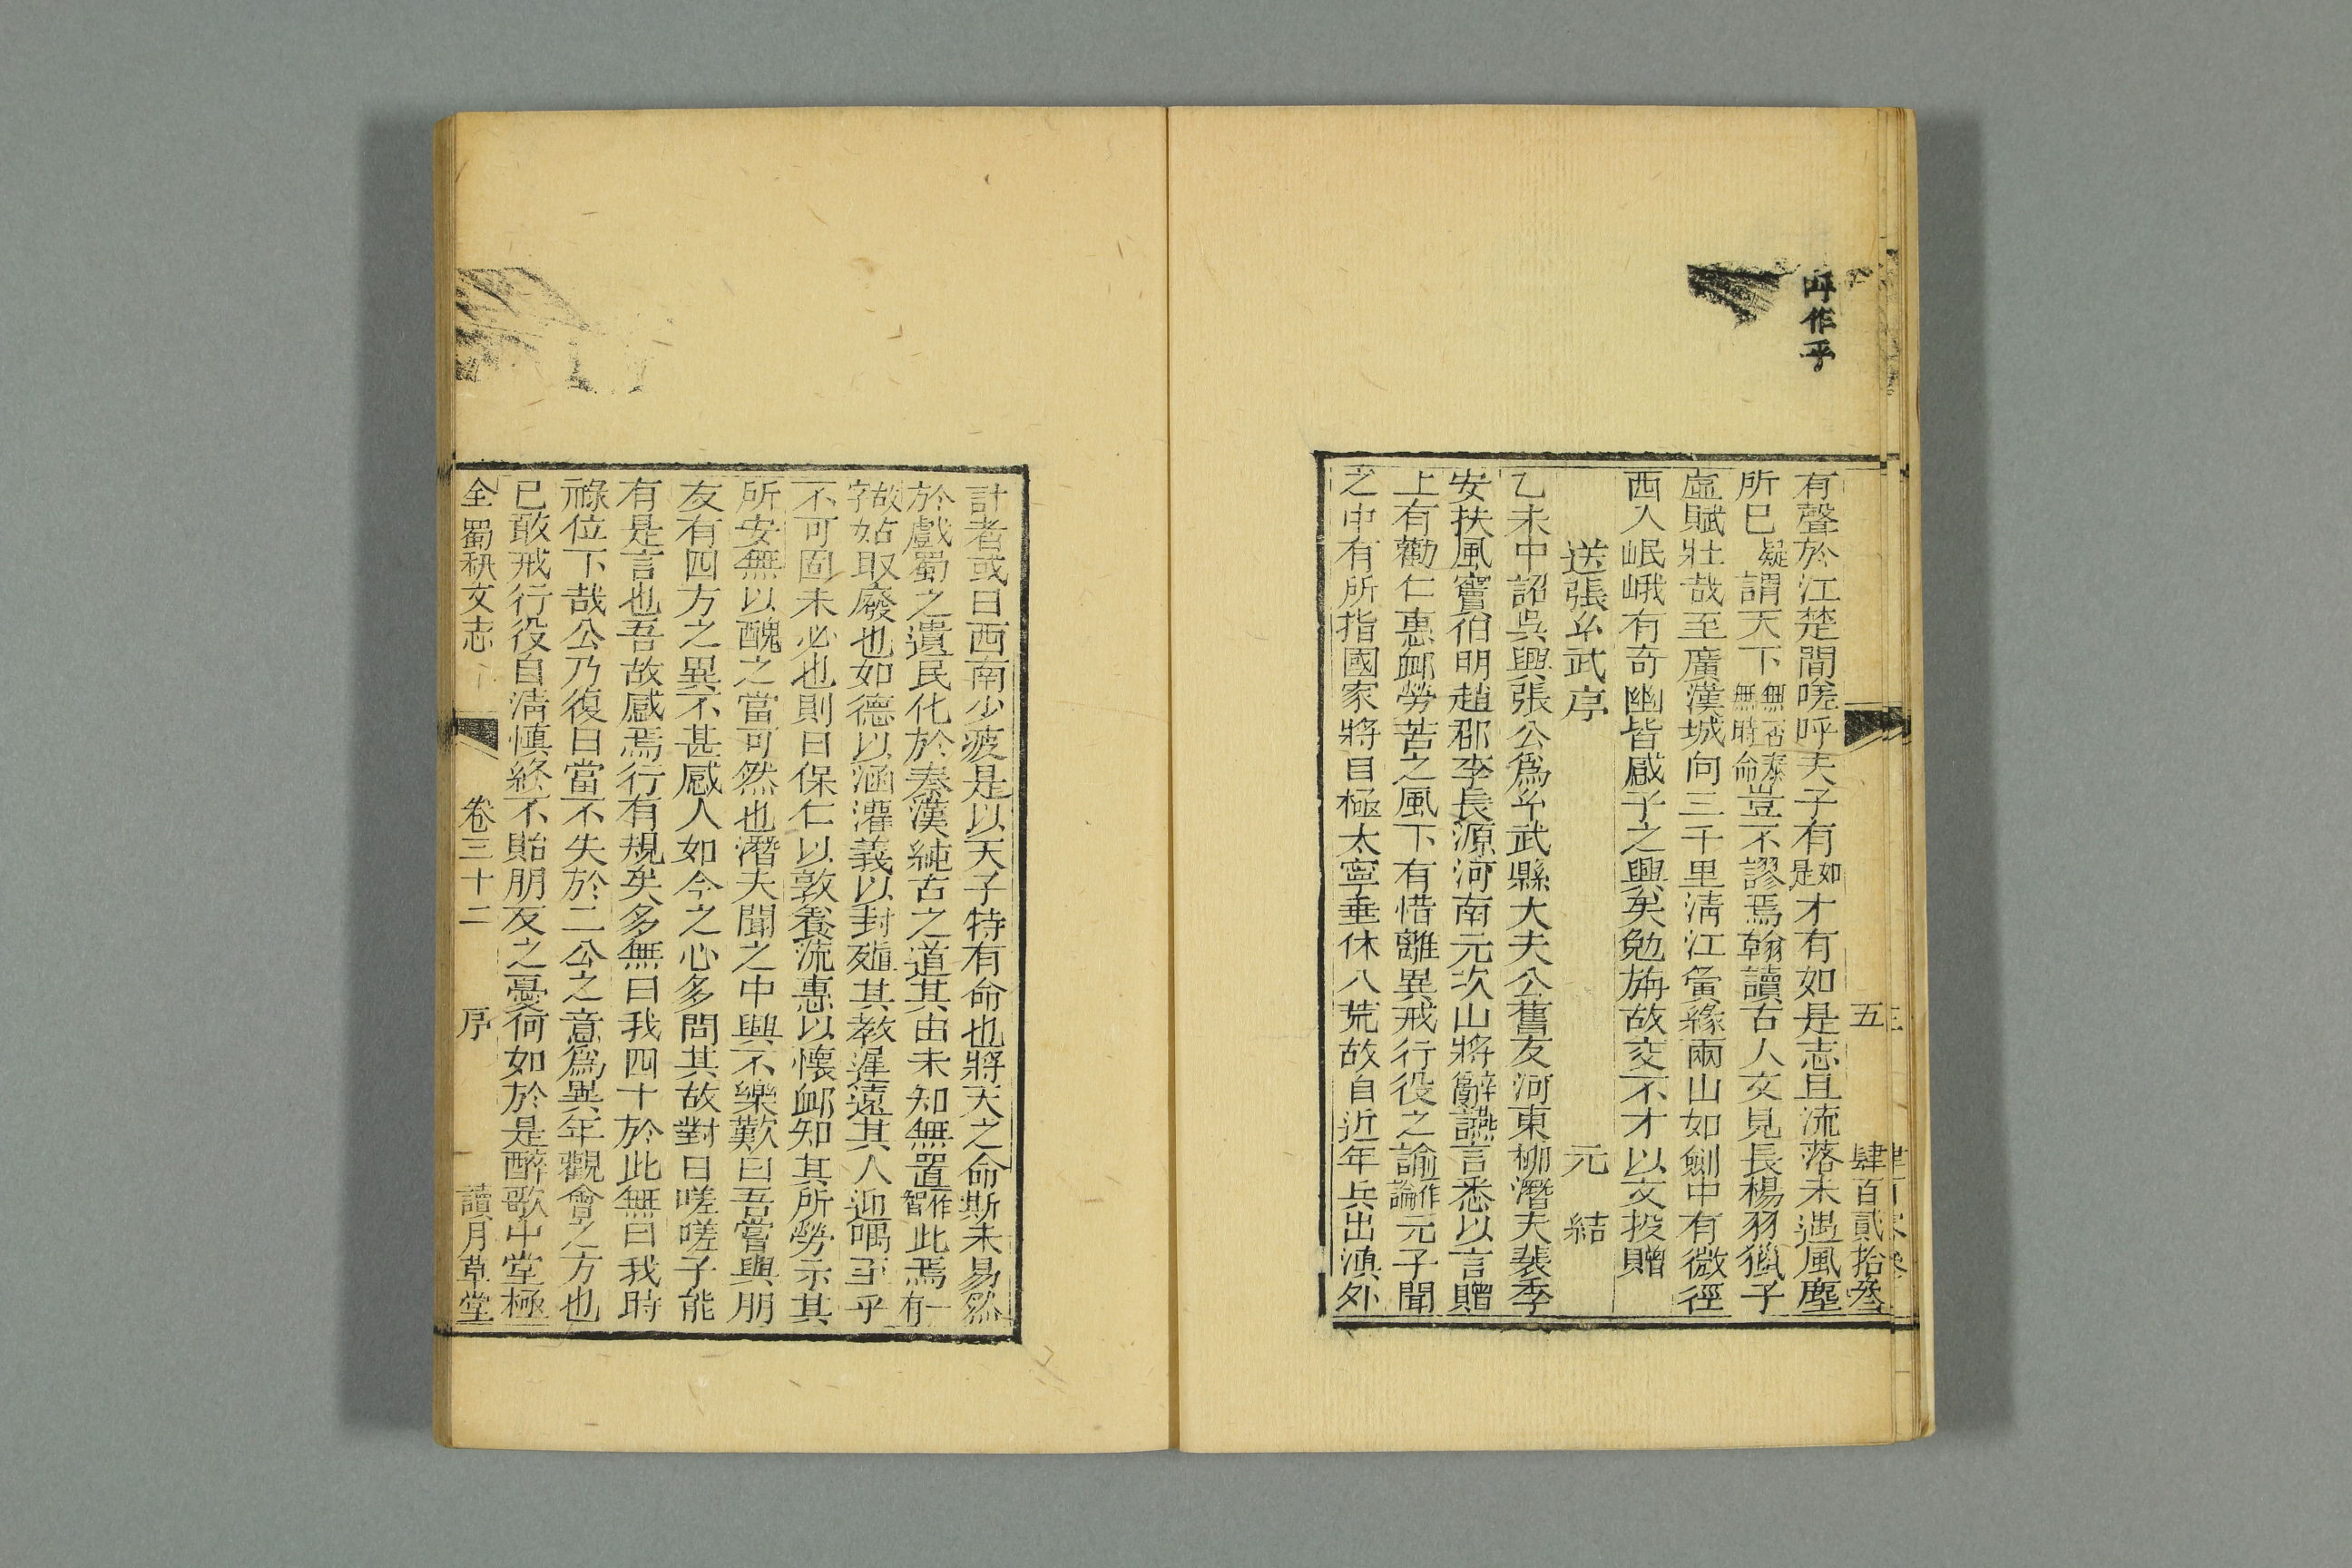 呼作乎
五 肆百貳拾叄
有聲於江楚間嗟呼夫子有如是才有如是志且流落未遇風塵
所巳疑謂天下無否泰無時命豈不謬焉翰讀古人文見長楊羽獵子
虛賦壯哉至廣漢城向三千里淸江夤緣兩山如劍中有微徑
西入岷峨有奇幽皆感子之興矣勉旃故交不才以文投贈
送張𢆯武序 元結
乙未中詔吳興張公爲𢆯武縣大夫公舊友河東柳潛夫裴季
安扶風竇伯明趙郡李長源河南元次山將辭讌言悉以言贈
上有勸仁惠䘏勞苦之風下有惜離異戒行役之諭作論元子聞
之中有所指國家將目極太寧垂休八荒故自近年兵出滇外
計者或曰西南少疲是以天子特有命也將天之命斯未易然
於戲蜀之遺民化於秦漢純古之道其由未知無置作智此焉一有
故字姑取廢也如德以涵灌義以封殖其教遲遠其人迎喁至乎
不可固未必也則曰保仁以敦養流惠以懷䘏知其所勞示其
所安無以醜之當可然也潛夫聞之中興不樂歎曰吾嘗與朋
友有四方之異不甚感人如今之心多問其故對曰嗟嗟子能
有是言也吾故感焉行有規矣多無曰我四十於此無曰我時
祿位下哉公乃復曰當不失於二公之意爲異年觀會之方也
已敢戒行役自淸愼終不貽朋友之憂何如於是醉歌中堂極
全蜀秇文志 卷三十二 序 讀月草堂